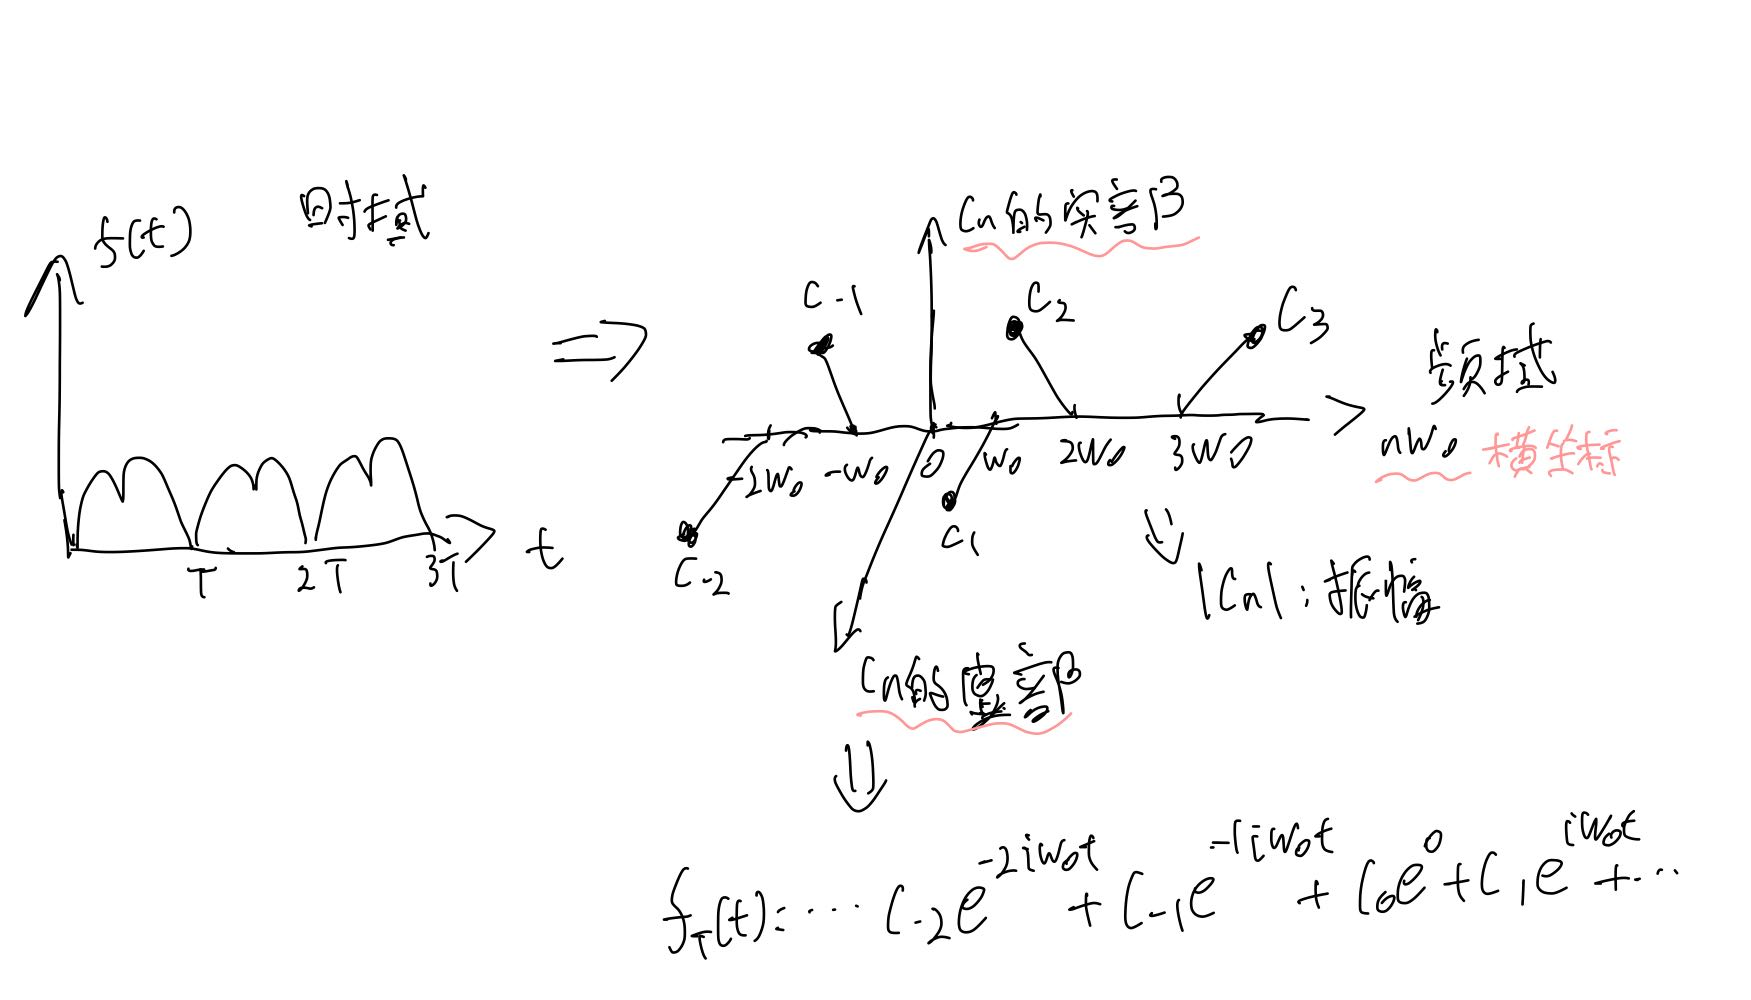 f(t) 时域
Cn的实部
C-1
C2
C3
频域
-2w0 -w0 0 w0 2w0 3w0
nw0 横坐标
C1
C-2
t
T 2T 3T
|Cn|:振幅
Cn的虚部
fT(t): ··· C-2e^-2iw0t + C-1e^-1iw0t + C0e^0 + C1e^iw0t + ···